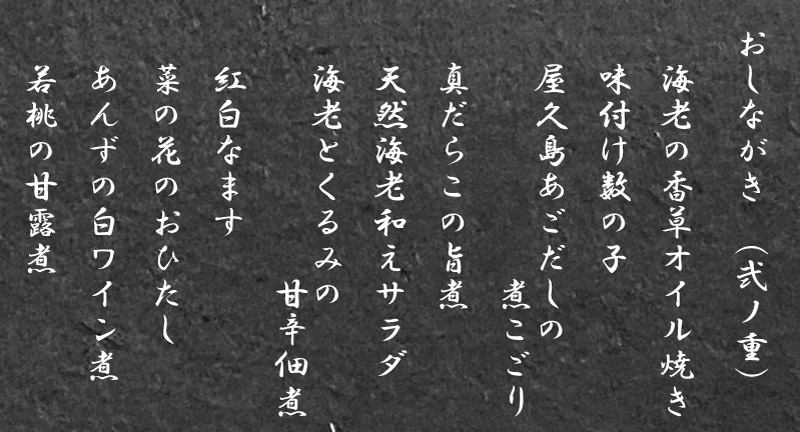 おしながき （弐ノ重）
海老の香草オイル焼き
味付け数の子
屋久島あごだしの
煮こごり
真だらこの旨煮
天然海老和えサラダ
海老とくるみの
甘辛佃煮
紅白なます
菜の花のおひたし
あんずの白ワイン煮
若桃の甘露煮